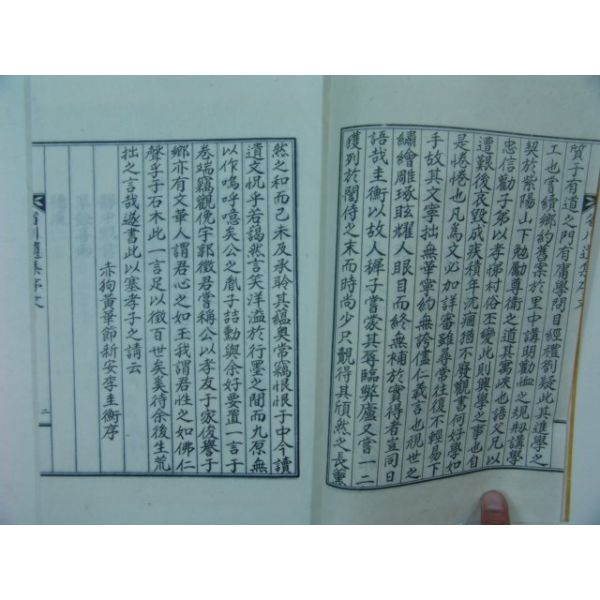 質于有道之門有庸學問目經禮劄疑此其進學之
工也嘗續鄉約舊案於里中講明勸恤之規剏講學
契於紫陽山下勉勵尊衛之道其寓峽也語父兄以
忠信勸子弟以孝悌村俗丕變此則興學之事也自
遭艱後哀毀成疾積年沉痼猶不廢觀書何好學如
是惓惓也凡爲文必加詳審雖尋常往復不輕易下
手故其文寧拙無華寧約無誇儘仁義言也視世之
繡繪雕琢眩耀人眼目而終無補於實得者豈同日
語哉圭衡以故人穉子嘗蒙其辱臨弊廬又嘗一二
獲列於闍侍之末而時尚少只覿得其頎然之長薰
然之和而已未及承聆其蘊奧常竊恨恨于中今讀
遺文怳乎若謁然言笑洋溢於行墨之間而九原無
以作嗚呼噫矣公之胤子喆勳與余好要置一言于
卷端竊觀俛宇郭徵君嘗稱公以孝友于家俊譽于
鄉亦有文華人謂君心之如玉我謂君性之如佛仁
聲孚于石木此一言足以徵百世矣奚待余後生荒
拙之言哉遂書此以塞孝子之請云
赤狗黃華節新安李圭衡序